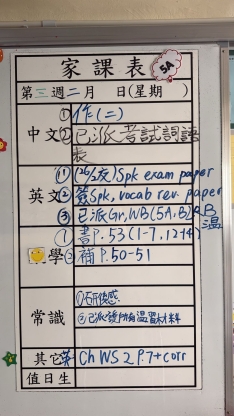 家課表
5A
第三週二月 日(星期 )
①作(二)
中文②已派考試詞語
表
①(26/2交)Spk exam paper
英文②簽Spk, vocab rev. paper
③已派Gr, WB(5A,B)
B
溫
①書P.53(1-7,12,14)
學②補P.50-51
常識
②已派發所有溫習材料
其它英 Ch WS 2 P.7+corr
值日生